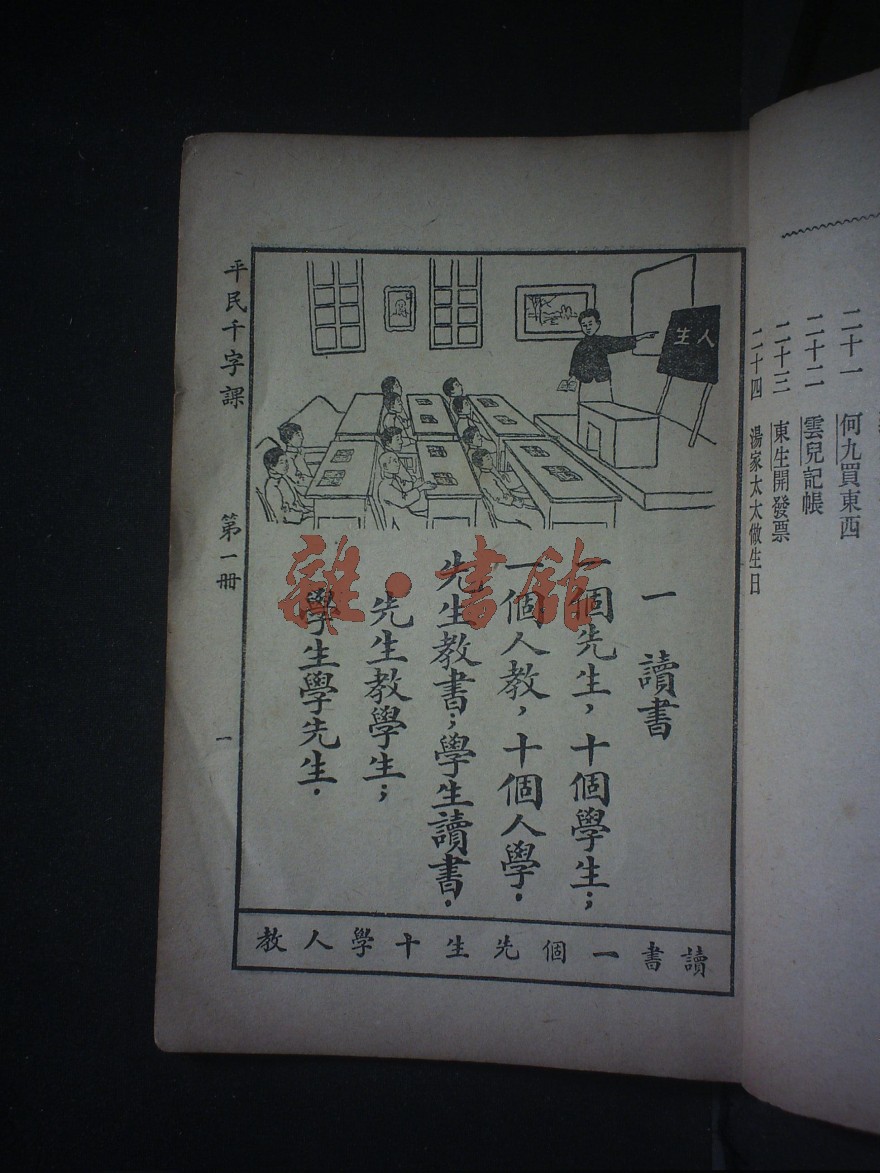 二十一 何九買東西
二十二 雲兒記帳
二十三 東生開發票
二十四 湯家太太做生日
人生
一 讀書
一個先生，十個學生；
一個人教，十個人學．
先生教書；學生讀書．
先生教學生；
學生學先生．
讀書一個先生十學人教
平民千字課 第一冊 一
雜·書館